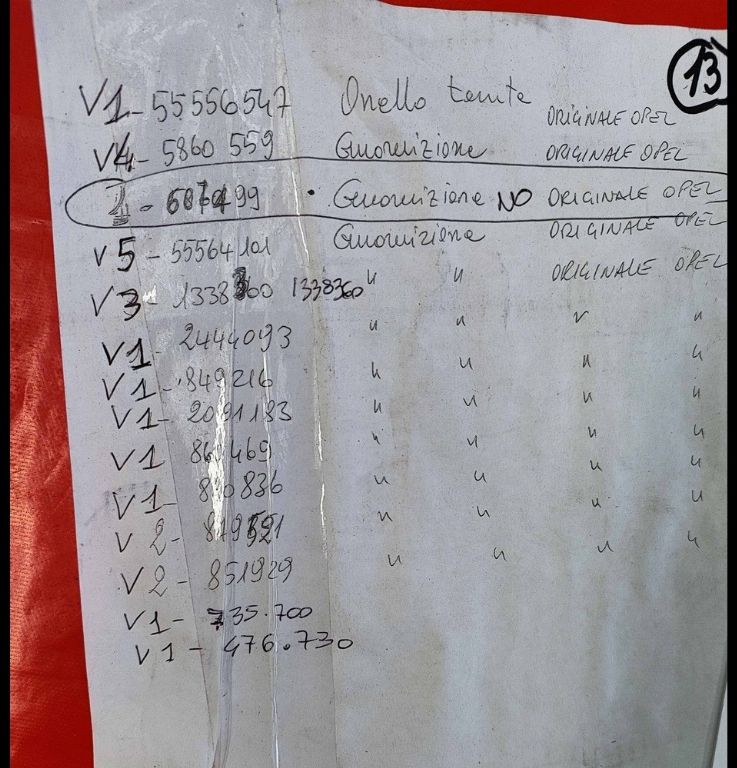 13
V1 - 55556547 Anello tenute ORIGINALE OPEL
V4 - 5860 559 Guarnizione ORIGINALE OPEL
- 99 • Guarnizione NO ORIGINALE OPEL
V5 - 55564101 Guarnizione ORIGINALE OPEL
V3 - 1338360 1338360 " " ORIGINALE OPEL
V1 - 2444093 " " " "
V1 - 849216 " " " "
V1 - 2091183 " " " "
V1 860469 " " " "
V1 - 836 " " " "
V2 - " " " "
V2 - 851929 " " " "
V1 - 735.700
V1 - 476.730